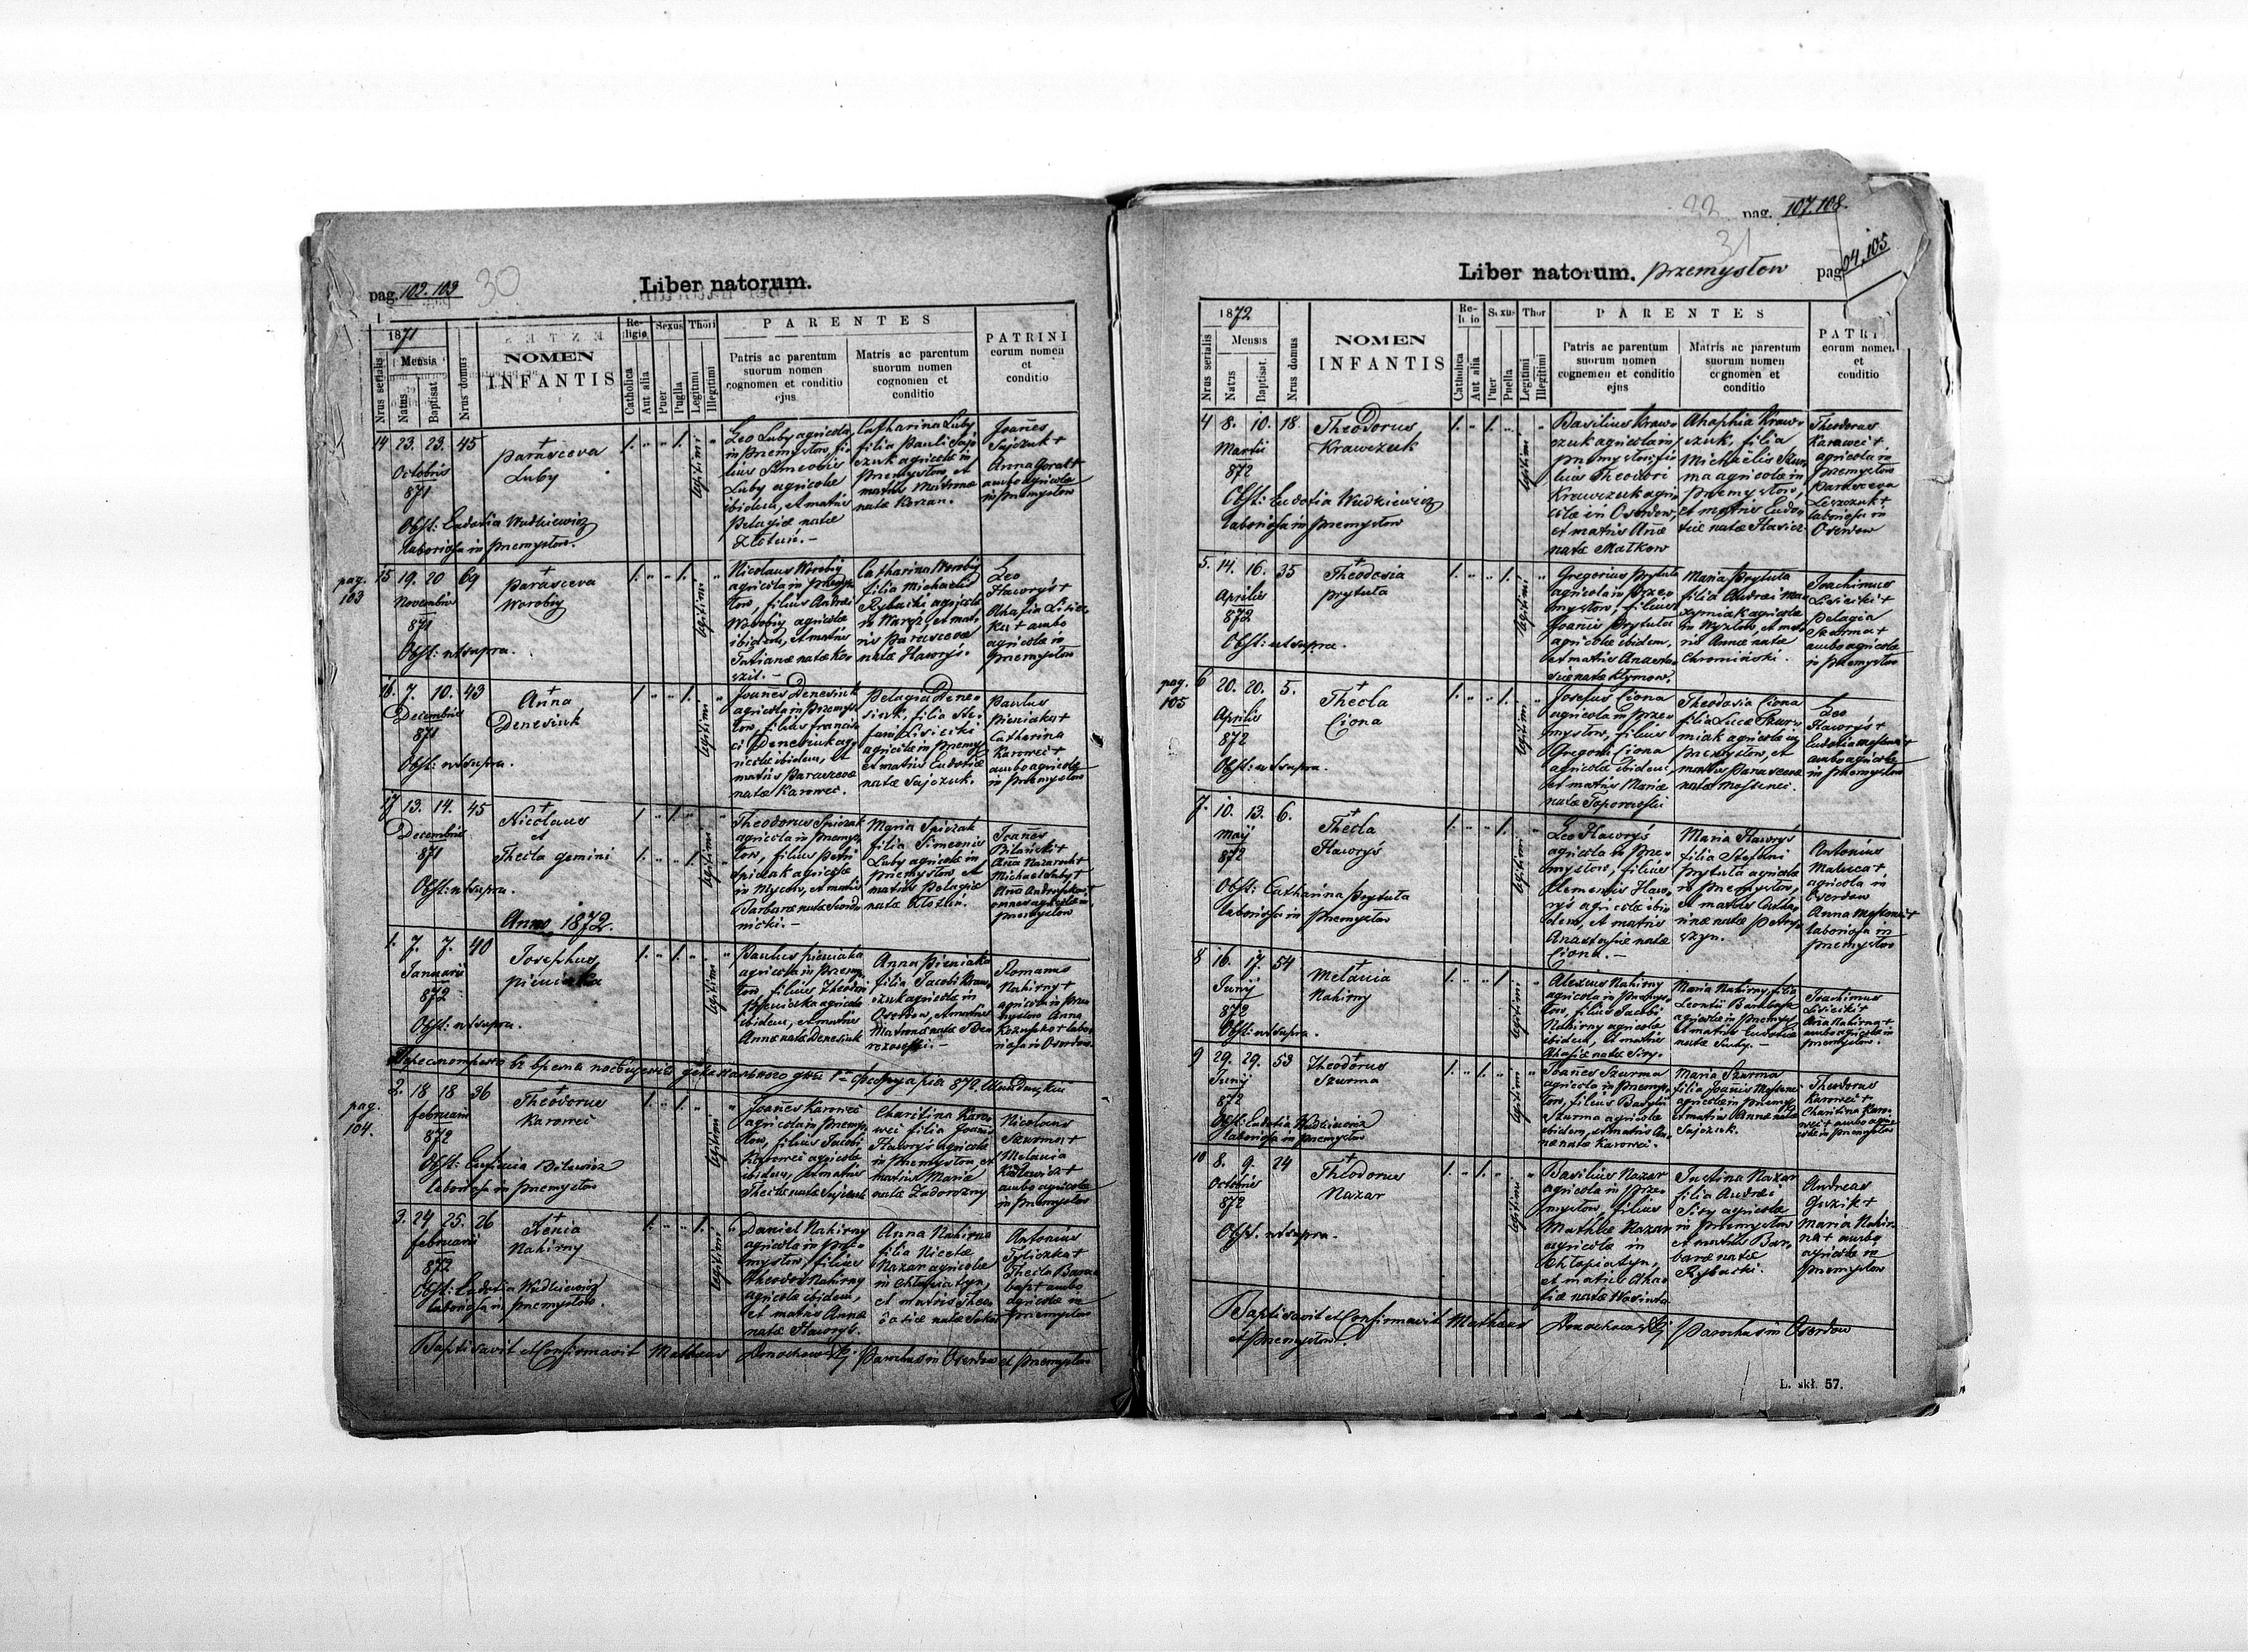 pag. 102.103
30
Liber natorum.
1871
Nrus serialis
Mensis
Natus
Baptisat.
Nrus domus
NOMEN
INFANTIS
Religio
Catholica
Aut alia
Sexus
Puer
Puella
Thori
Legitimi
Illegitimi
PARENTES
Patris ac parentum
suorum nomen
cognomen et conditio
ejus
Matris ac parentum
suorum nomen
cognomen et
conditio
PATRINI
eorum nomen
et
conditio
14 23. 23. 45
Octobris
871
Parasceva
Luby
legitimi
Leo Luby agricola
in Przemysłow, fi-
lius Simeonis
Luby agricolæ
ibidem, et matris
Pelagiæ natæ
Złotuń.-
Catharina Luby
filia Pauli Saj-
czuk agricolæ in
Przemysłow, et
matris Matronæ
natæ Kozan.
Joañes
Sajczuk +
Anna Goral +
ambo agricolæ
in Przemysłow
Obst: Eudotia Wudkiewicz
laboriosa in Przemysłow.
pag.
103
15 19. 20 69
Novembris
871
Parasceva
Worobij
legitimi
Nicolaus Worobij
agricola in Przemys-
łow, filius Andrei
Worobij agricolæ
ibidem, et matris
Tatianæ natæ Ko-
szil.-
Catharina Worobij
filia Michaelis
Rybaiki agricolæ
in Waręż, et mat-
ris Parascevæ
natæ Haworyś.
Leo
Haworyś +
Ahafia Lisic-
ka + ambo
agricolæ in
Przemysłow
Obst: ut supra.
16. 7. 10. 43
Decembris
871
Anna
Denesiuk
legitimi
Joañes Denesiuk
agricola in Przemys-
łow, filius Francis-
ci Denesiuk ag-
ricolæ ibidem, et
matris Parascevæ
natæ Karowec.
Pelagia Dene-
siuk, filia Ste-
fani Lisiecki
agricolæ in Przemys.
et matris Eudotiæ
natæ Sajczuk.
Paulus
Pieniaka +
Catharina
Karowec +
ambo agricolæ
in Przemysłow
Obst: ut supra.
17 13. 14. 45
Decembris
871
Nicolaus
et
Thecla gemini
legitimi
Theodorus Spiczak
agricola in Przemys-
łow, filius Petri
Spiczak agricolæ
in Mycow, et matris
Barbaræ natæ
Maria Spiczak
filia Simeonis
Luby agricolæ in
Przemysłow et
matris Pelagiæ
natæ Złotuń.
Joanes
Bilański +
Aña Nazarewicz +
Michael Luby +
omnes agricolæ in
Przemysłow
Obst: ut supra.
Anno 1872.
1. 7. 7. 40
Januarii
872
Josephus
Pieniaka
legitimi
Paulus Pieniaka
agricola in Przemys-
łow, filius Theodori
Pieniaka agricolæ
ibidem, et matris
Annæ natæ Denesiuk
Anna Pieniaka
filia Jacobi Kraw-
czuk agricolæ in
Oserdow, et matris
Matronæ natæ
Romanus
Nahirny +
agricola in Prze-
mysłow Anna
labo-
riosa in Oserdow.
Obst: ut supra.
2. 18 18 36
Februarii
872
Theodorus
Karowec
legitimi
Joañes Karowec
agricola in Przemys-
łow, filius Jacobi
Karowec agricolæ
ibidem, et matris
Theclæ natæ Sajczuk
Charitina Karo-
wec filia Joañis
Haworyś agricolæ
in Przemysłow, et
matris Mariæ
natæ Zadorozny
Nicolaus
Szurma +
Melania
ambo agricolæ
in Przemysłow
pag.
104.
Obst: Eufemia Bilewicz
laboriosa in Przemysłow
3. 24 25. 26
Februarii
872
Xenia
Nahirny
legitimi
Daniel Nahirny
agricola in Prze-
mysłow, filius
Theodori Nahirny
agricolæ ibidem,
et matris Annæ
natæ Haworyś.
Anna Nahirna
filia Nicetæ
Nazar agricolæ
in Chłopiatyn,
et matris Theo-
dosiæ natæ
Antonius
Tyliczka +
Thecla
ambo
agricolæ in
Przemysłow
Obst: Eudotia Wudkiewicz
laboriosa in Przemysłow.
Baptisavit et Confirmavit Mathæus Donochowskij Parochus in Oserdow et Przemysłow
pag. 107.108.
31
Liber natorum. Przemysłow
pag. 04.105
1872
Nrus serialis
Mensis
Natus
Baptisat.
Nrus domus
NOMEN
INFANTIS
Catholica
Aut alia
Puer
Puella
Thor
Legitimi
Illegitimi
PARENTES
Patris ac parentum
suorum nomen
cognomen et conditio
ejus
Matris ac parentum
suorum nomen
cognomen et
conditio
PATRI
eorum nomen
et
conditio
4 8. 10. 18
Martii
872
Theodorus
Krawczuk
legitimi
Basilius Kraw-
czuk agricola in
Przemysłow, fi-
lius Theodori
Krawczuk agri-
colæ in Oserdow,
et matris Añæ
natæ Małkow
Ahaphia Kraw-
czuk, filia
Michaëlis Szur-
ma agricolæ in
Przemysłow,
et matris Eudo-
tiæ natæ
Theodorus
Karowec +
agricola in
Przemysłow
Parasceva
Lewczuk +
laboriosa in
Oserdow
Obst: Eudotia Wudkiewicz
laboriosa in Przemysłow
5. 14. 16. 35
Aprilis
872
Theodosia
Prytuła
legitimi
Gregorius Prytuła
agricola in Prze-
mysłow, filius
Joañis Prytuła
agricolæ ibidem,
et matris Anasta-
siæ natæ Klymow.
Maria Prytuła
filia Andrei
agricolæ
in Wyżłow, et mat-
ris Annæ natæ
Chromiński.
Joachimus
Lisiecki +
Pelagia
Szurma +
ambo agricolæ
in Przemysłow
Obst: ut supra.
pag.
105
6 20. 20. 5.
Aprilis
872
Thecla
Ciona
legitimi
Josefus Ciona
agricola in Prze-
mysłow, filius
Gregorii Ciona
agricolæ ibidem,
et matris Mariæ
natæ Toporowski
Theodosia Ciona
filia Lucæ
agricolæ in
Przemysłow, et
matris Parascevæ
natæ
Leo
Haworyś +
Eudotia
ambo agricolæ
in Przemysłow
Obst: ut supra.
7. 10. 13. 6.
Maij
872
Thecla
Haworyś
legitimi
Leo Haworyś
agricola in Prze-
mysłow, filius
Clementis Hawo-
ryś agricolæ ibi-
dem, et matris
Anastasiæ natæ
Ciona.-
Maria Haworyś
filia Stefani
Prytuła agricolæ
in Przemysłow,
et matris Catha-
rinæ natæ Petry-
szyn.
Antonius
agricola in
Oserdow
Anna
laboriosa in
Przemysłow
Obst: Catharina Prytuła
laboriosa in Przemysłow
8 16. 17. 54
Junij
872
Melania
Nahirny
legitimi
Alexius Nahirny
agricola in Przemys-
łow, filius Jacobi
Nahirny agricolæ
ibidem, et matris
Ahafiæ natæ Siry.
Maria Nahirny, filia
Leontii
agricolæ in Przemysł.
et matris Eudotiæ
natæ
Joachimus
Lisiecki +
Aña Nahirna +
ambo agricolæ in
Przemysłow.
Obst: ut supra.
9 29. 29. 53
Junij
872
Theodorus
Szurma
legitimi
Joañes Szurma
agricola in Przemys-
łow, filius Basylii
Szurma agricolæ
ibidem, et matris An-
næ natæ Karowec.
Maria Szurma
filia Joañis
agricolæ in Przemysł.
et matris Annæ natæ
Sajczuk.
Theodorus
Karowec +
Charitina Karo-
wec + ambo agri-
colæ in Przemysłow
Obst: Eudotia Wudkiewicz
laboriosa in Przemysłow
10 8. 9. 24
Octobris
872
Theodorus
Nazar
legitimi
Basilius Nazar
agricola in Prze-
mysłow, filius
Mathiæ Nazar
agricolæ in
Chłopiatyn,
et matris Aha-
fiæ natæ
Justina Nazar
filia Andrei
Siry agricolæ
in Przemysłow
et matris Bar-
baræ natæ
Rybacki.
Andreas
Guzik +
Maria Nahir-
na + ambo
agricolæ in
Przemysłow
Obst. ut supra.
Baptisavit et Confirmavit Mathæus Donochowskij Parochus in Oserdow
et Przemysłow.
L. skł. 57.